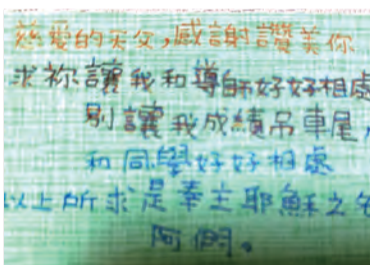 慈愛的天父,感謝讚美你
求祢讓我和導師好好相處
別讓我成績吊車尾,
和同學好好相處
以上所求是奉主耶穌之名
阿們。